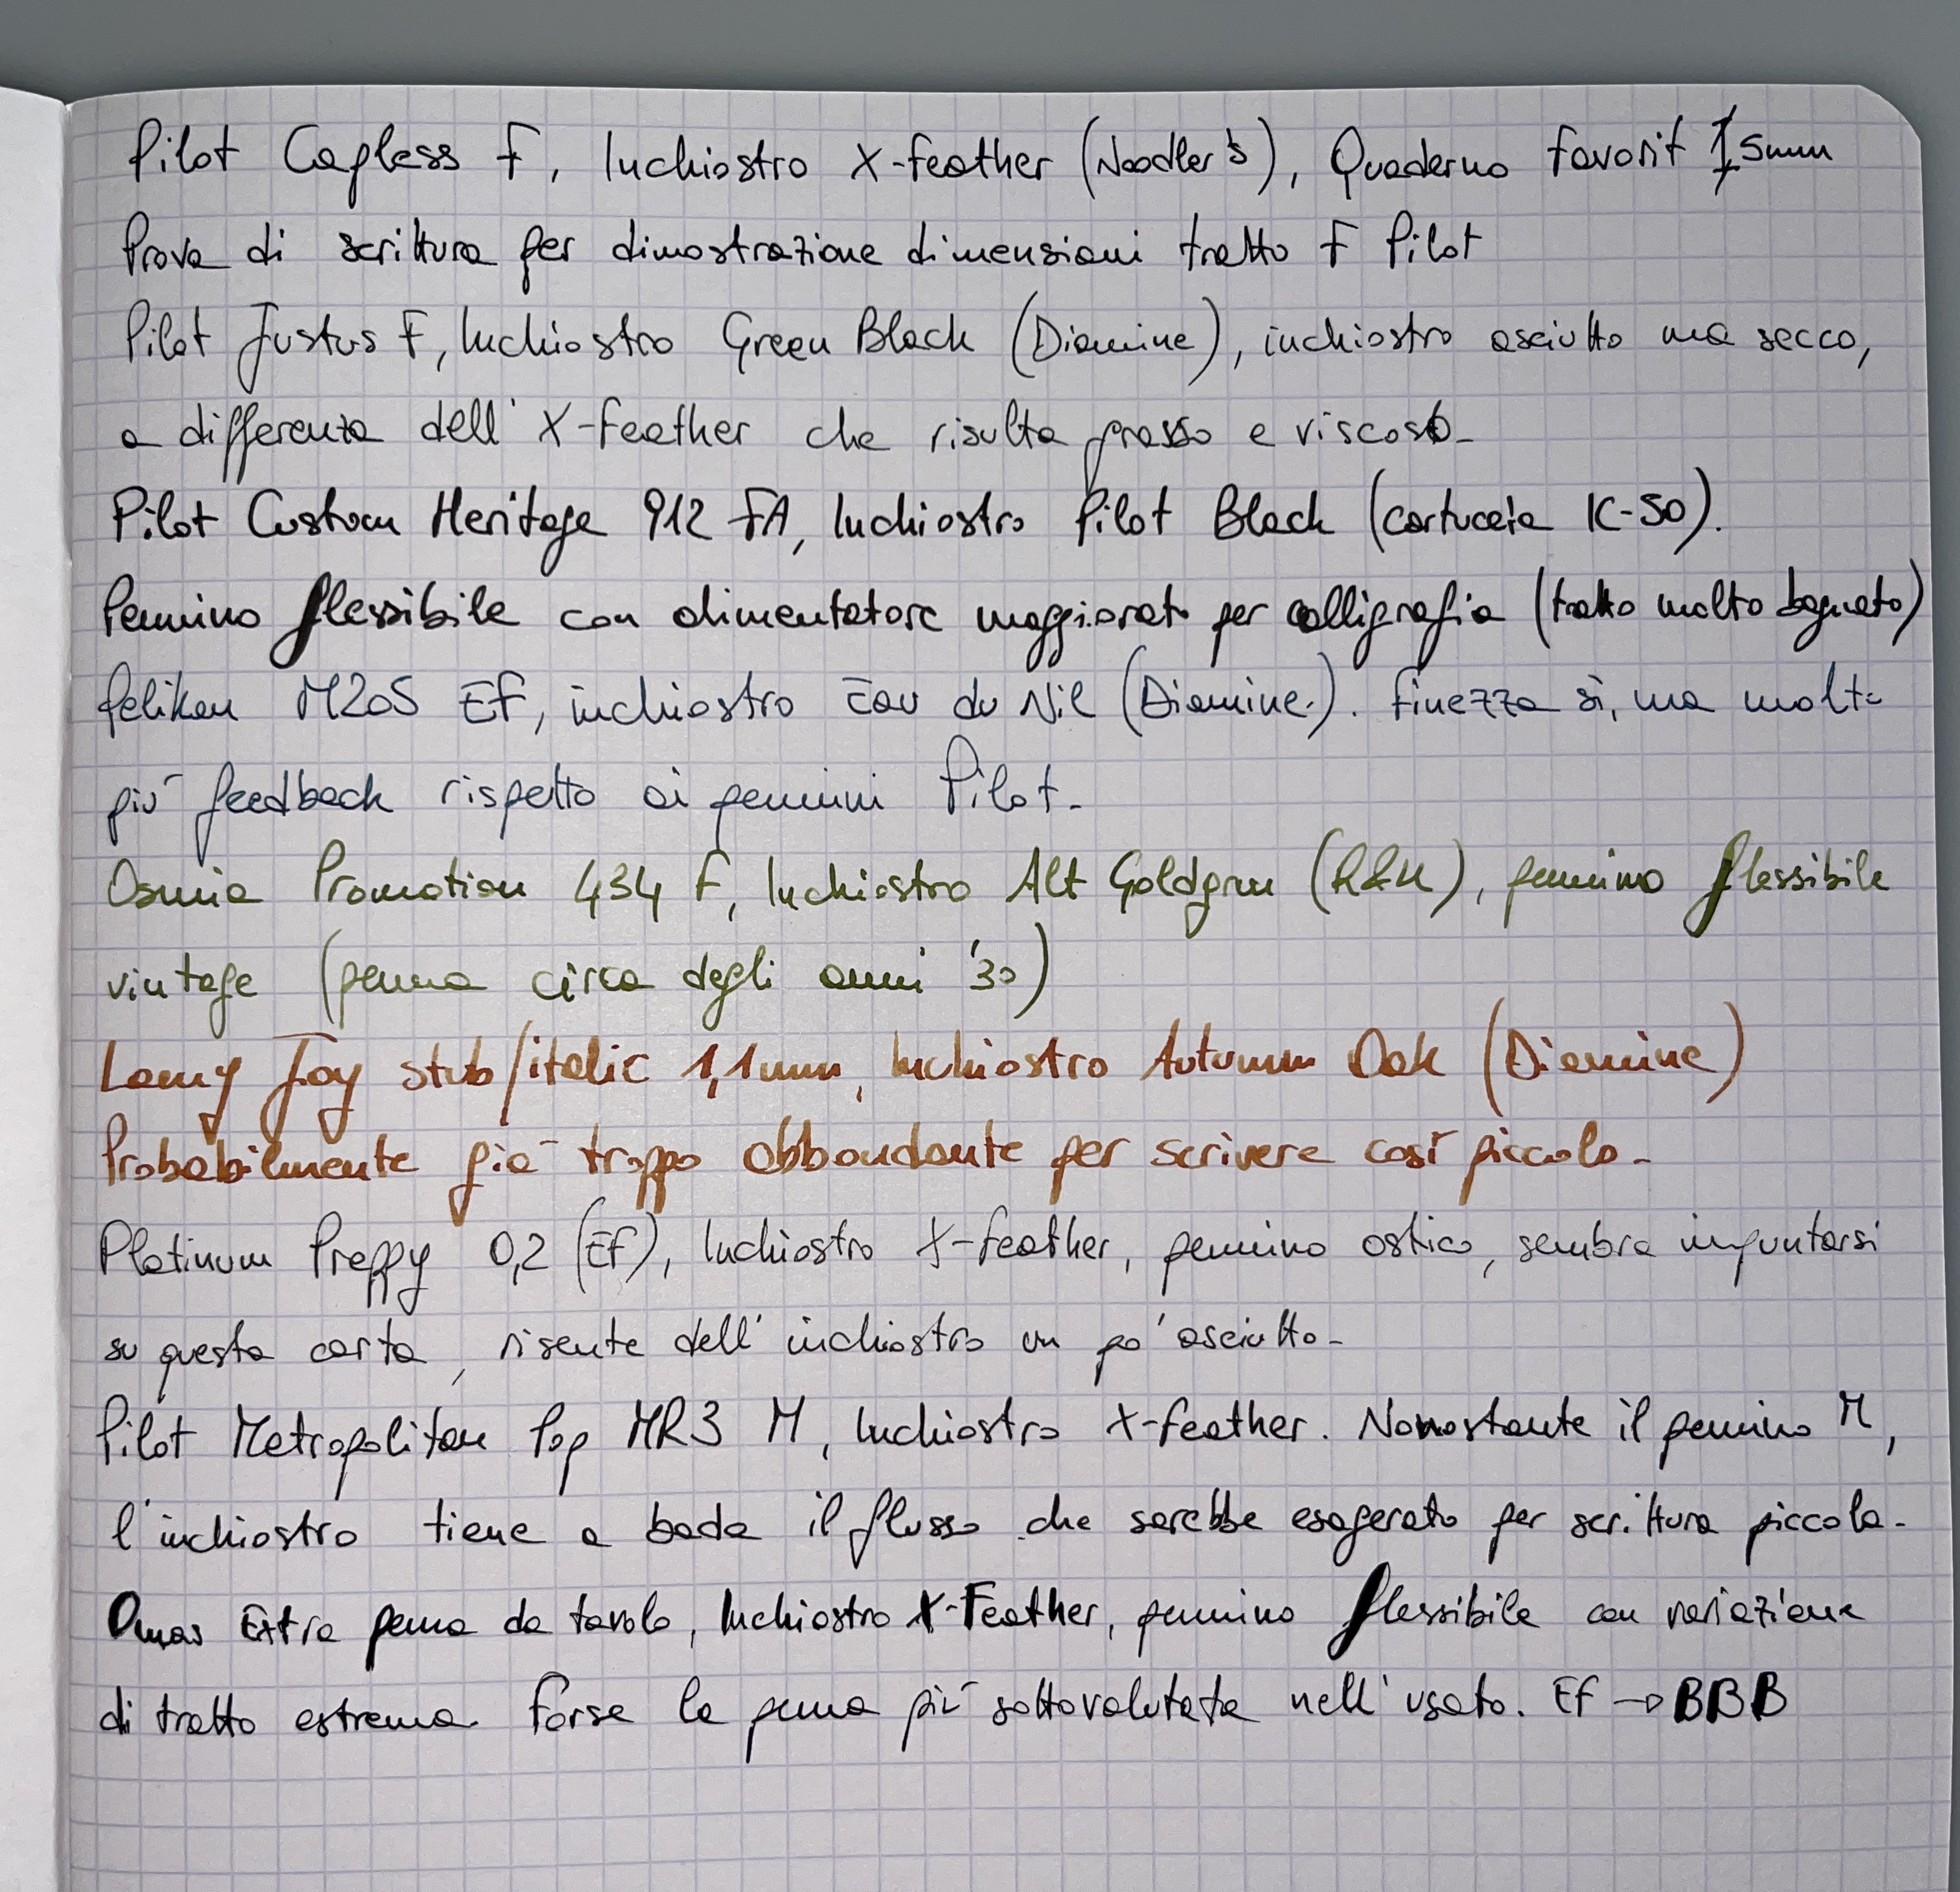 Pilot Capless F, Inchiostro X-feather (Noodler's), Quaderno favorit 5mm
Prova di scrittura per dimostrazione dimensioni tratto F Pilot
Pilot Justus F, Inchiostro Green Black (Diamine), inchiostro asciutto ma secco,
a differenza dell'X-Feather che risulta grasso e viscoso-
Pilot Custom Heritage 912 FA, Inchiostro Pilot Black (cartuccia IC-50).
Pennino flessibile con alimentatore maggiorato per calligrafia (tratto molto bagnato)
Pelikan M205 EF, inchiostro Eau du Nil (Diamine). Finezza sì, ma molto
più feedback rispetto ai pennini Pilot-
Osmia Promotion 434 F, Inchiostro Alt Goldgrun (R&K), pennino flessibile
vintage (penna circa degli anni '30)
Lamy Joy stub/italic 1,1mm, Inchiostro Autumn Oak (Diamine)
Probabilmente già troppo abbondante per scrivere così piccolo-
Platinum Preppy 0,2 (EF), Inchiostro X-feather, pennino ostico, sembra impuntarsi
su questa carta, risente dell'inchiostro un po' asciutto-
Pilot Metropolitan Pop MR3 M, Inchiostro X-feather. Nonostante il pennino M,
l'inchiostro tiene a bada il flusso che sarebbe esagerato per scrittura piccola-
Omas Extra penna da tavolo, Inchiostro X-Feather, pennino flessibile con variazione
di tratto estrema. Forse la penna più sottovalutata nell'usato. EF → BBB